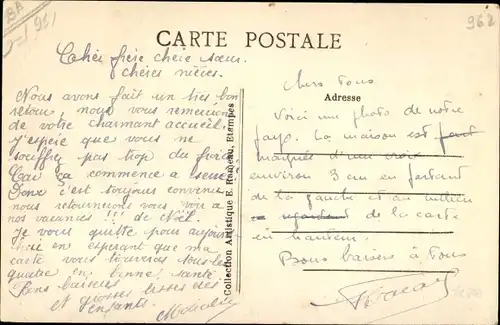 BA
961
962
CARTE POSTALE
Cher frère chère sœur
chères nièces.
Nous avons fait un très bon
retour, nous vous remercions
de votre charmant accueil
j'espère que vous ne
souffrez pas trop du froid
Car ça commence a
Donc c'est toujours convenu
nous retournions vous voir a
nos vacances !!! de Noël.
Je vous quitte pour aujour
hui en esperant que ma
carte vous tous les
quatre en bonne santé.
Bons baisers
et grosses bises des
enfants.
Collection Artistique E. Rameau, Etampes
Chers Tous
Adresse
Voici une photo de notre
pays. La maison est
marquée d'une croix
environ 3 cm en partant
de la gauche et au milieu
de la carte
en hauteur.
Bons baisers à Tous